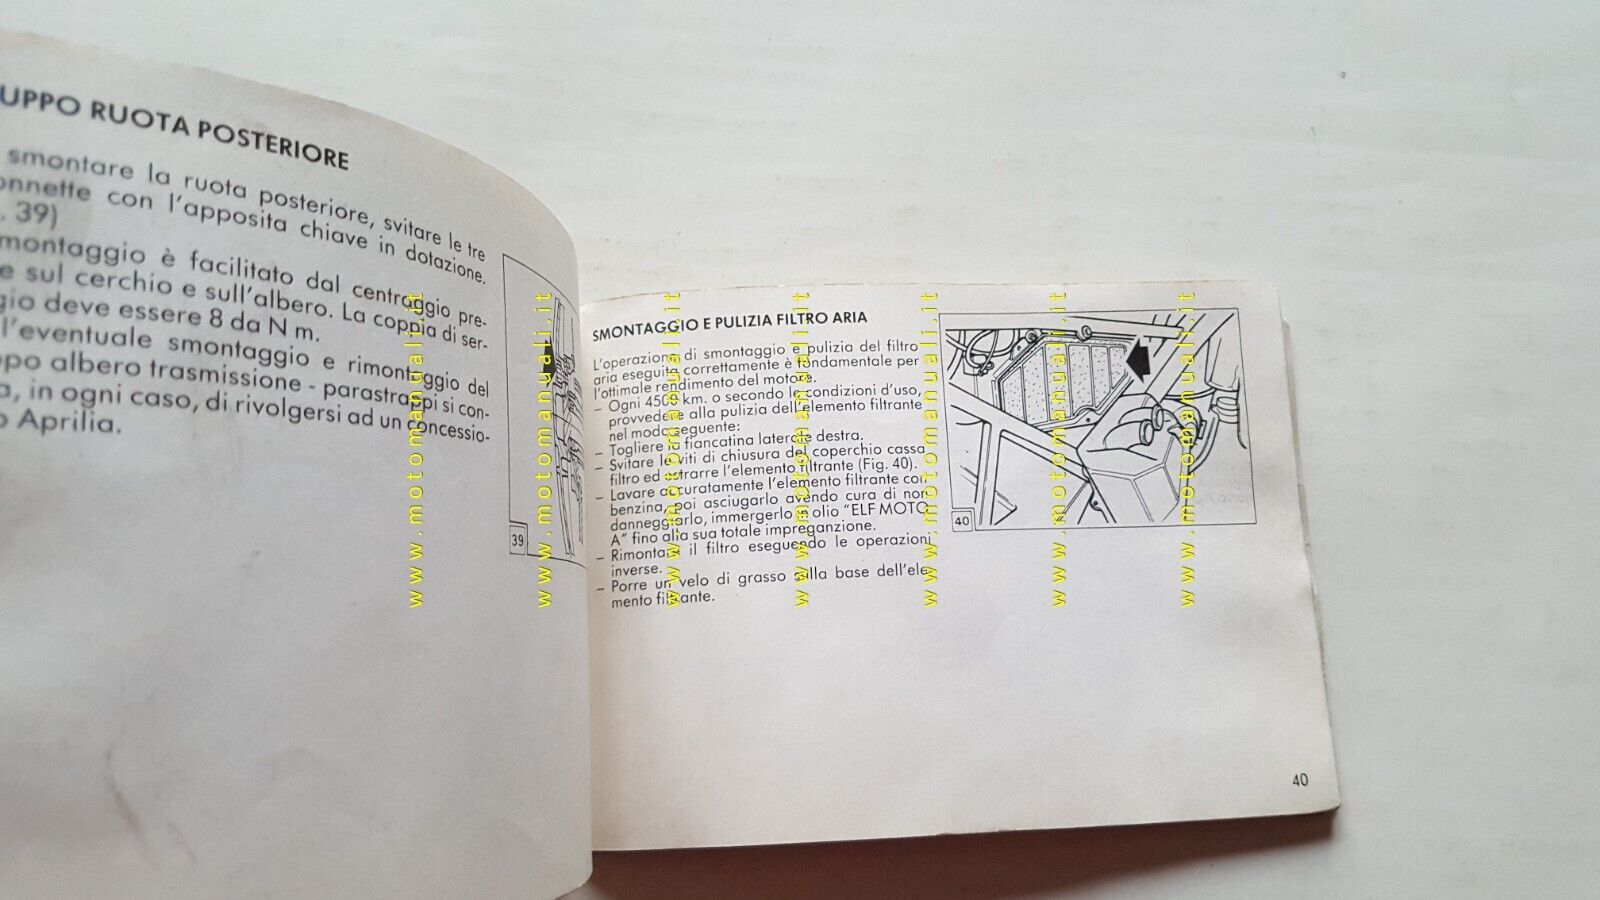 UPPO RUOTA POSTERIORE
smontare la ruota posteriore, svitare le tre
onnette con l'apposita chiave in dotazione.
. 39)
montaggio è facilitato dal centraggio pre-
e sul cerchio e sull'albero. La coppia di ser-
gio deve essere 8 da N m.
l'eventuale smontaggio e rimontaggio del
ppo albero trasmissione - parastrappi si con-
a, in ogni caso, di rivolgersi ad un concessio-
o Aprilia.
39
SMONTAGGIO E PULIZIA FILTRO ARIA
L'operazione di smontaggio e pulizia del filtro
aria eseguita correttamente è fondamentale per
l'ottimale rendimento del motore.
– Ogni 4500 km. o secondo le condizioni d'uso,
provvedere alla pulizia dell'elemento filtrante
nel modo seguente:
– Togliere la fiancatina laterale destra.
– Svitare le viti di chiusura del coperchio cassa
filtro ed estrarre l'elemento filtrante (Fig. 40).
– Lavare accuratamente l'elemento filtrante con
benzina, poi asciugarlo avendo cura di non
danneggiarlo, immergerlo in olio "ELF MOTO
A" fino alla sua totale impreganzione.
– Rimontare il filtro eseguendo le operazioni
inverse.
– Porre un velo di grasso sulla base dell'ele-
mento filtrante.
40
40
www.motomanuali.it
www.motomanuali.it
www.motomanuali.it
www.motomanuali.it
www.motomanuali.it
www.motomanuali.it
www.motomanuali.it